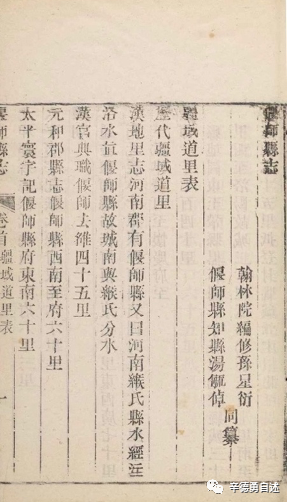 偃師縣志
翰林院編修孫星衍
偃師縣知縣湯毓倬
同纂
疆域道里表
歷代疆域道里
漢地里志河南郡有偃師縣又曰河南緱氏縣水經注
洛水逕偃師縣故城南與緱氏分水
漢官典職偃師去雒四十五里
元和郡縣志偃師縣西南至府六十里
太平寰宇記偃師縣府東南六十里
偃師縣志
卷首疆域道里表
一
辛德勇自述